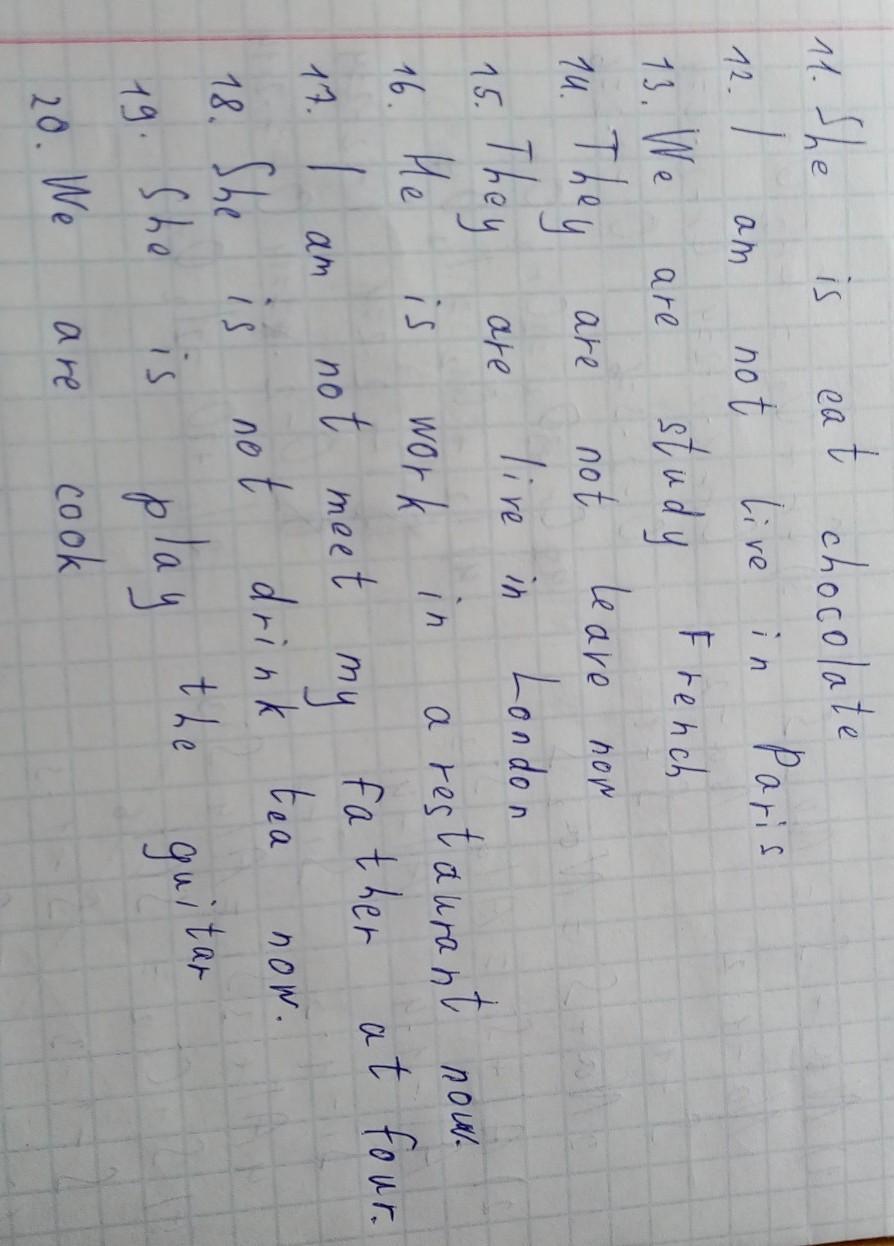 11. She is eat chocolate
12. I am not live in Paris
13. We are study French
14. They are not leave now
15. They are live in London
16. He is work in a restaurant now.
17. I am not meet my father at four.
18. She is not drink tea now.
19. She is play the guitar
20. We are cook